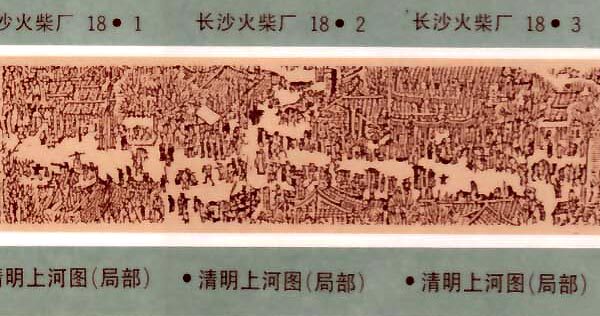 沙火柴厂 18•1 长沙火柴厂 18•2 长沙火柴厂 18•3
明上河图(局部) •清明上河图(局部) •清明上河图(局部)